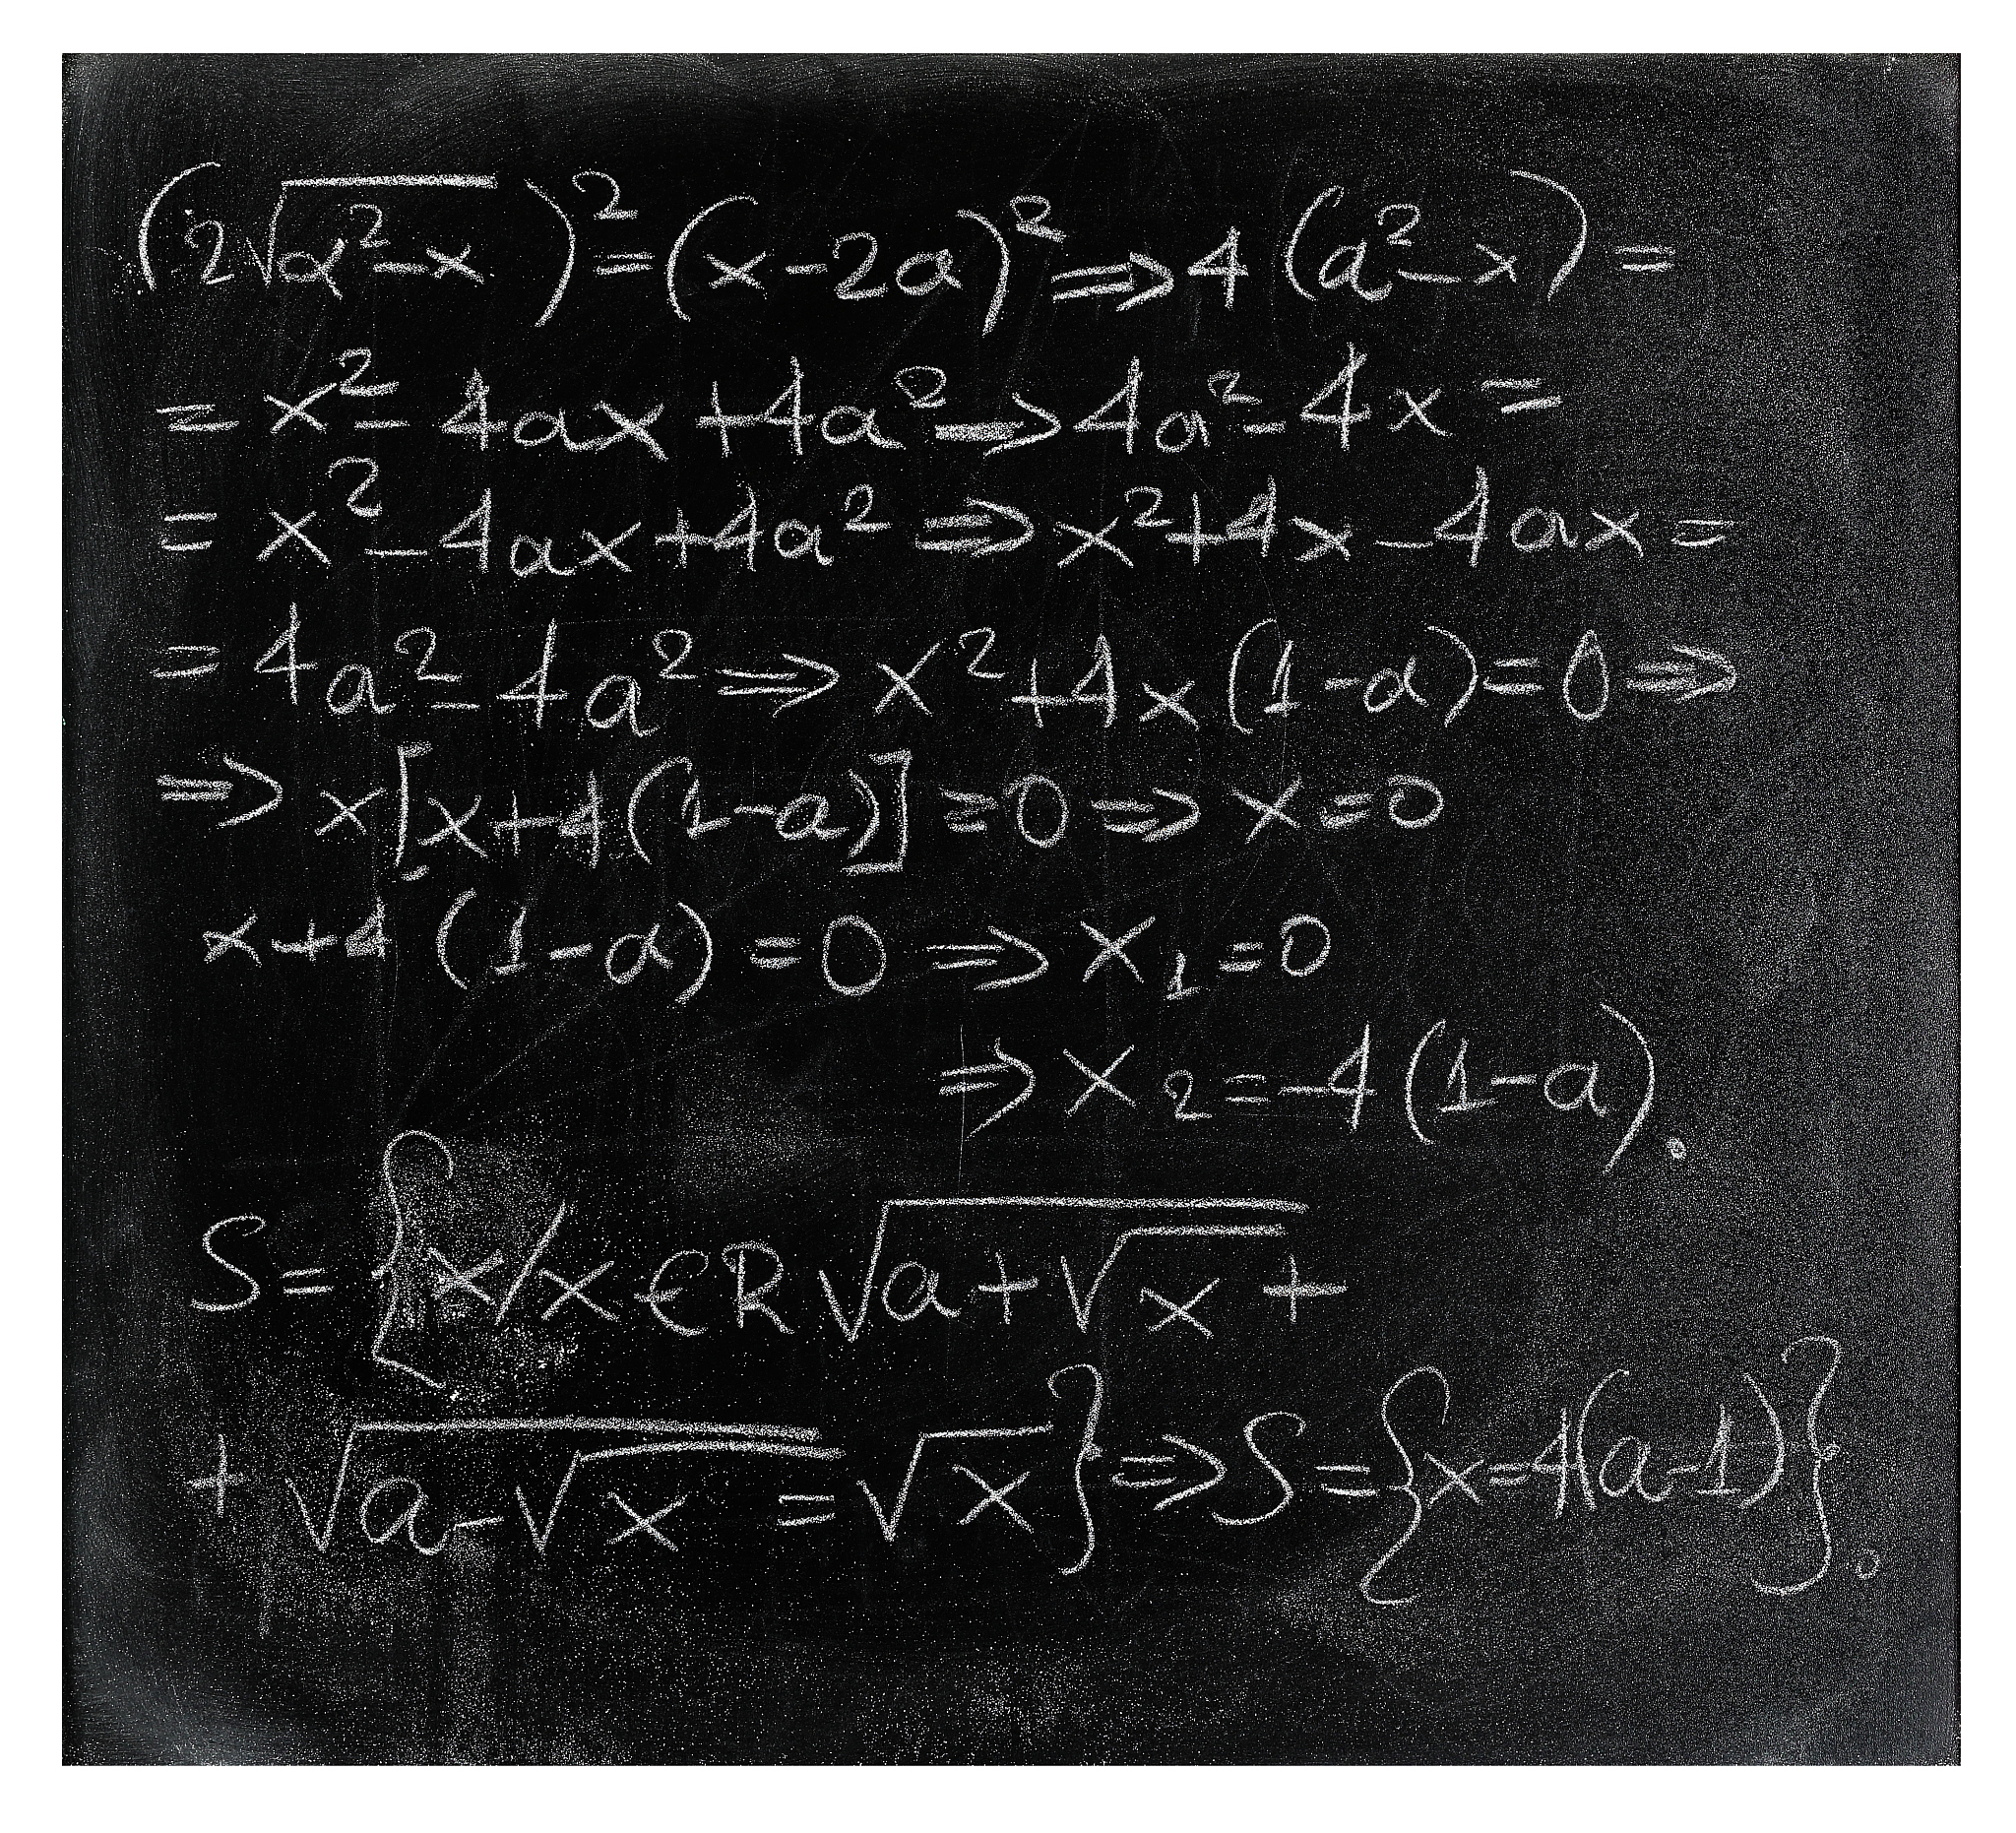 (2√(a²-x))² = (x-2a)² ⇒ 4(a²-x) =
= x² - 4ax + 4a² → 4a² - 4x =
= x² - 4ax + 4a² ⇒ x² + 4x - 4ax =
= 4a² - 4a² ⇒ x² + 4x(1-a) = 0 ⇒
⇒ x[x+4(1-a)] = 0 ⇒ x = 0
x+4(1-a) = 0 ⇒ x₁ = 0
⇒ x₂ = -4(1-a).
S = {x/x ∈ R √(a+√x) +
+ √(a-√x) = √x} ⇒ S = {x=4(a-1)}.